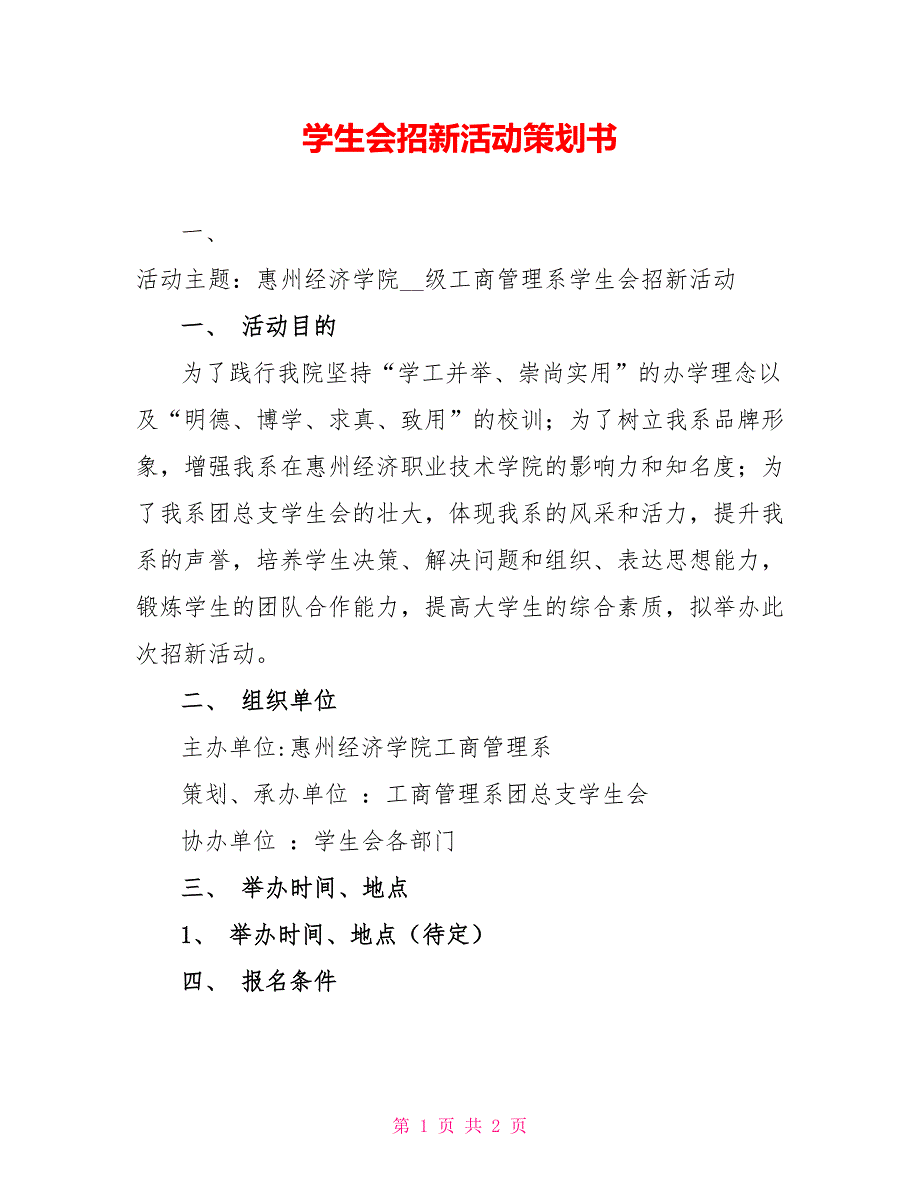 学生会招新活动策划书
一、
活动主题：惠州经济学院__级工商管理系学生会招新活动
一、 活动目的
为了践行我院坚持“学工并举、崇尚实用”的办学理念以
及“明德、博学、求真、致用”的校训；为了树立我系品牌形
象，增强我系在惠州经济职业技术学院的影响力和知名度；为
了我系团总支学生会的壮大，体现我系的风采和活力，提升我
系的声誉，培养学生决策、解决问题和组织、表达思想能力，
锻炼学生的团队合作能力，提高大学生的综合素质，拟举办此
次招新活动。
二、 组织单位
主办单位:惠州经济学院工商管理系
策划、承办单位 ：工商管理系团总支学生会
协办单位 ：学生会各部门
三、 举办时间、地点
1、 举办时间、地点（待定）
四、 报名条件
第 1 页 共 2 页